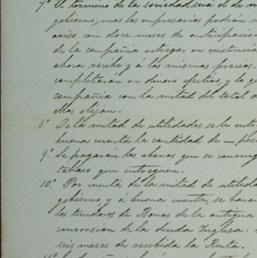 7ª El termino de la sociedad será el de
gobierno, mas los empresarios podrán
con doce meses de anticipacion
de la compañia entregar en existencias
ahora recibe y a los mismos precios,
completaran en dinero efectivo, y la
compañia con la mitad del total
Mas elijan.
8ª De la mitad de utilidades se le
buena cuenta la cantidad de
9ª Se pagaran los abonos que se
tabaco que entreguen.
10ª Por cuenta de la mitad de
gobierno y a buena cuenta, se
los tenedores de Bonos de la antigua
conversion de la deuda Inglesa
seis meses de recibida la Renta.